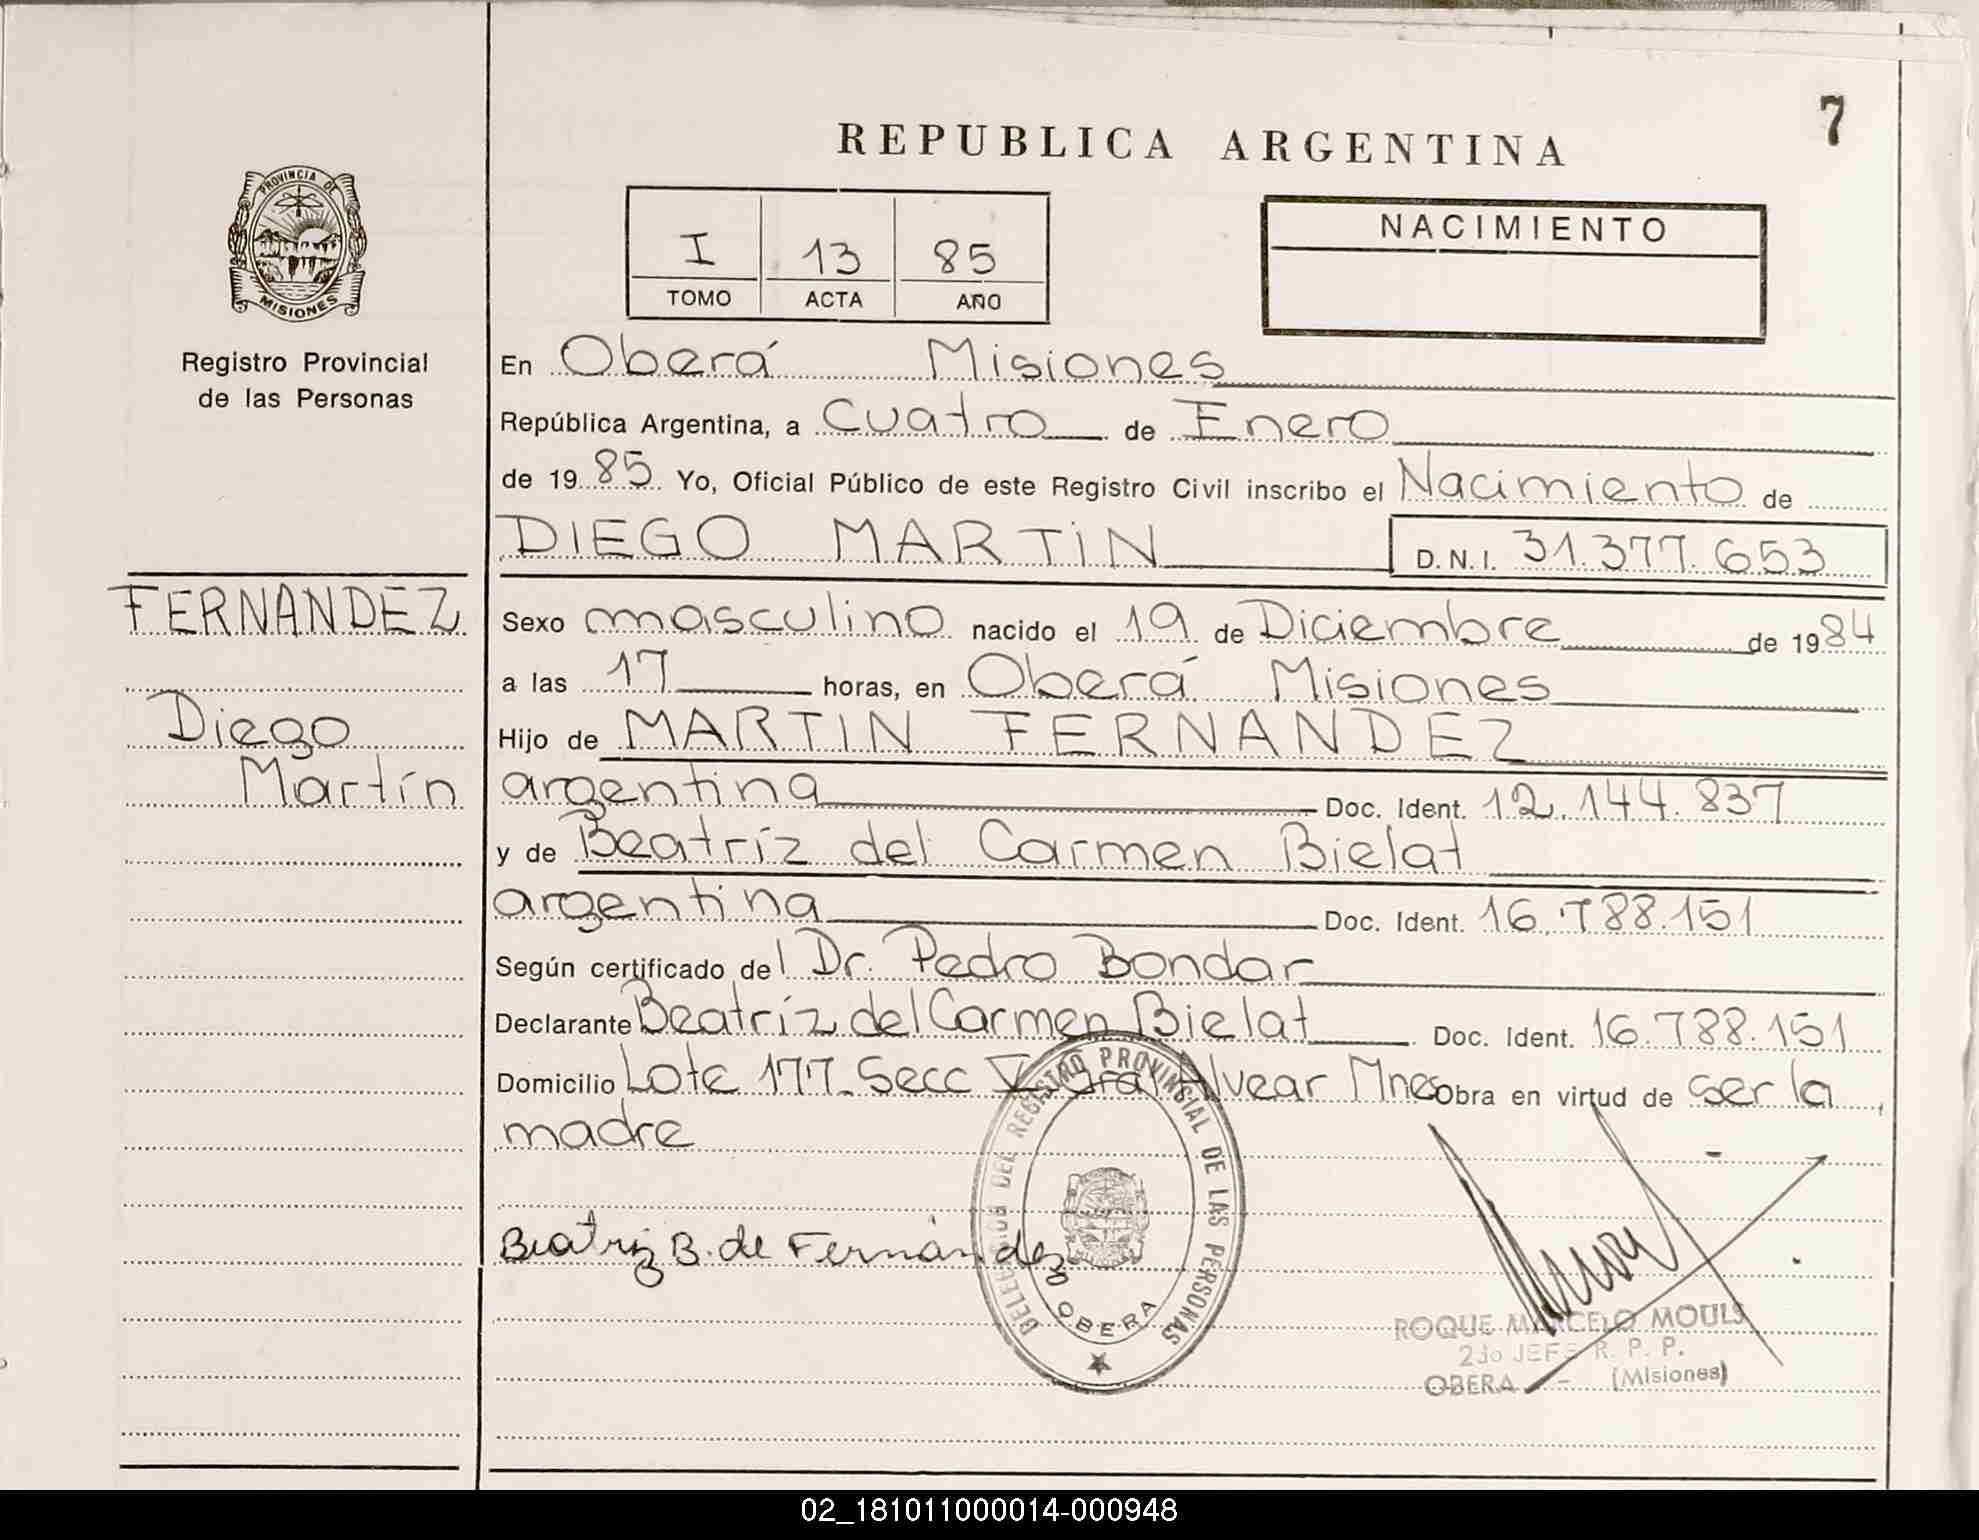 7
REPUBLICA ARGENTINA
PROVINCIA DE
MISIONES
Registro Provincial
de las Personas
I 13 85
TOMO ACTA AÑO
NACIMIENTO
En Oberá Misiones
República Argentina, a Cuatro de Enero
de 1985 Yo, Oficial Público de este Registro Civil inscribo el Nacimiento de
DIEGO MARTIN D.N.I. 31.377.653
FERNANDEZ
Diego
Martín
Sexo masculino nacido el 19 de Diciembre de 1984
a las 17 horas, en Oberá Misiones
Hijo de MARTIN FERNANDEZ
argentina Doc. Ident. 12.144.837
y de Beatríz del Carmen Bielat
argentina Doc. Ident. 16.788.151
Según certificado del Dr. Pedro Bondar
Declarante Beatríz del Carmen Bielat Doc. Ident. 16.788.151
Domicilio Lote 177. Secc V Gral Alvear Mnes Obra en virtud de ser la
madre
Beatriz B. de Fernández
DELEGACION DEL REGISTRO PROVINCIAL DE LAS PERSONAS
OBERA
ROQUE MARCELO MOULS
2do JEFE R. P. P.
OBERA - (Misiones)
02_181011000014-000948